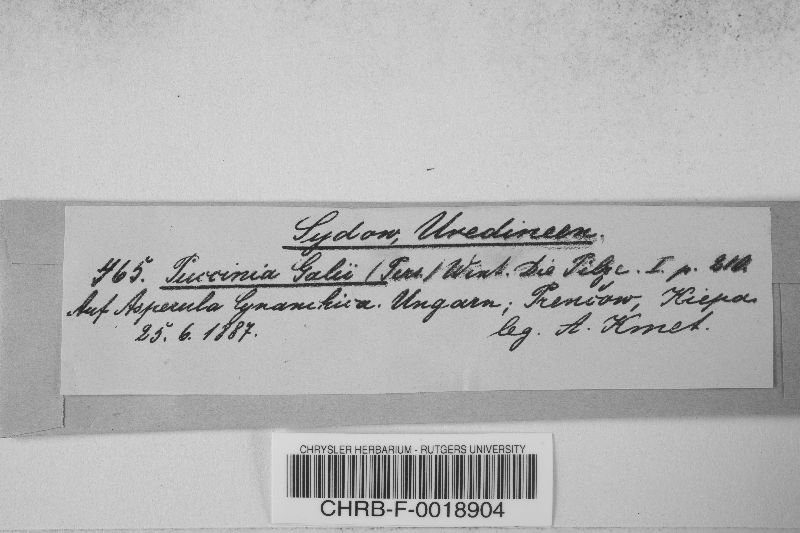 Sydow, Uredineen.
465. Puccinia Galii (Pers.) Wint. Die Pilze. I. p. 210.
Auf Asperula Cynanchica. Ungarn; Trenčow, Kiepa.
25. 6. 1887. leg. A. Kmet.
CHRYSLER HERBARIUM - RUTGERS UNIVERSITY
CHRB-F-0018904